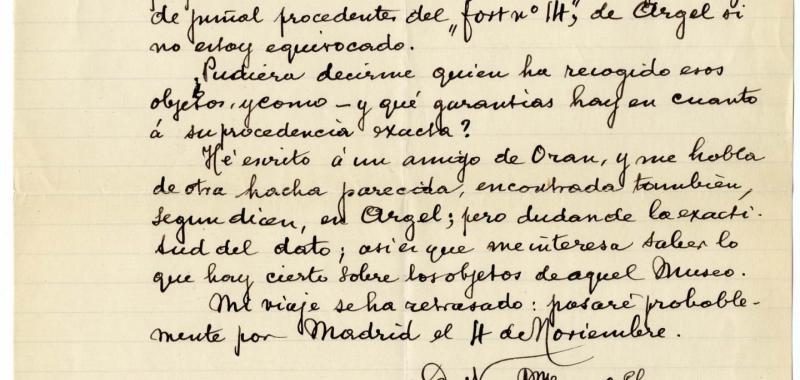 de puñal procedentes del "fort nº 14", de Argel si
no estoy equivocado.
¿Pudiera decirme quien ha recogido esos
objetos, y como – y qué garantias hay en cuanto
á su procedencia exacta?
Hé escrito á un amigo de Oran, y me habla
de otra hacha parecida, encontrada tambien,
segun dicen, en Argel; pero dudan de la exacti-
tud del dato; asi es que me interesa saber lo
que hay cierto sobre los objetos de aquel Museo.
Mi viaje se ha retrasado: pasaré probable-
mente por Madrid el 4 de Noviembre.